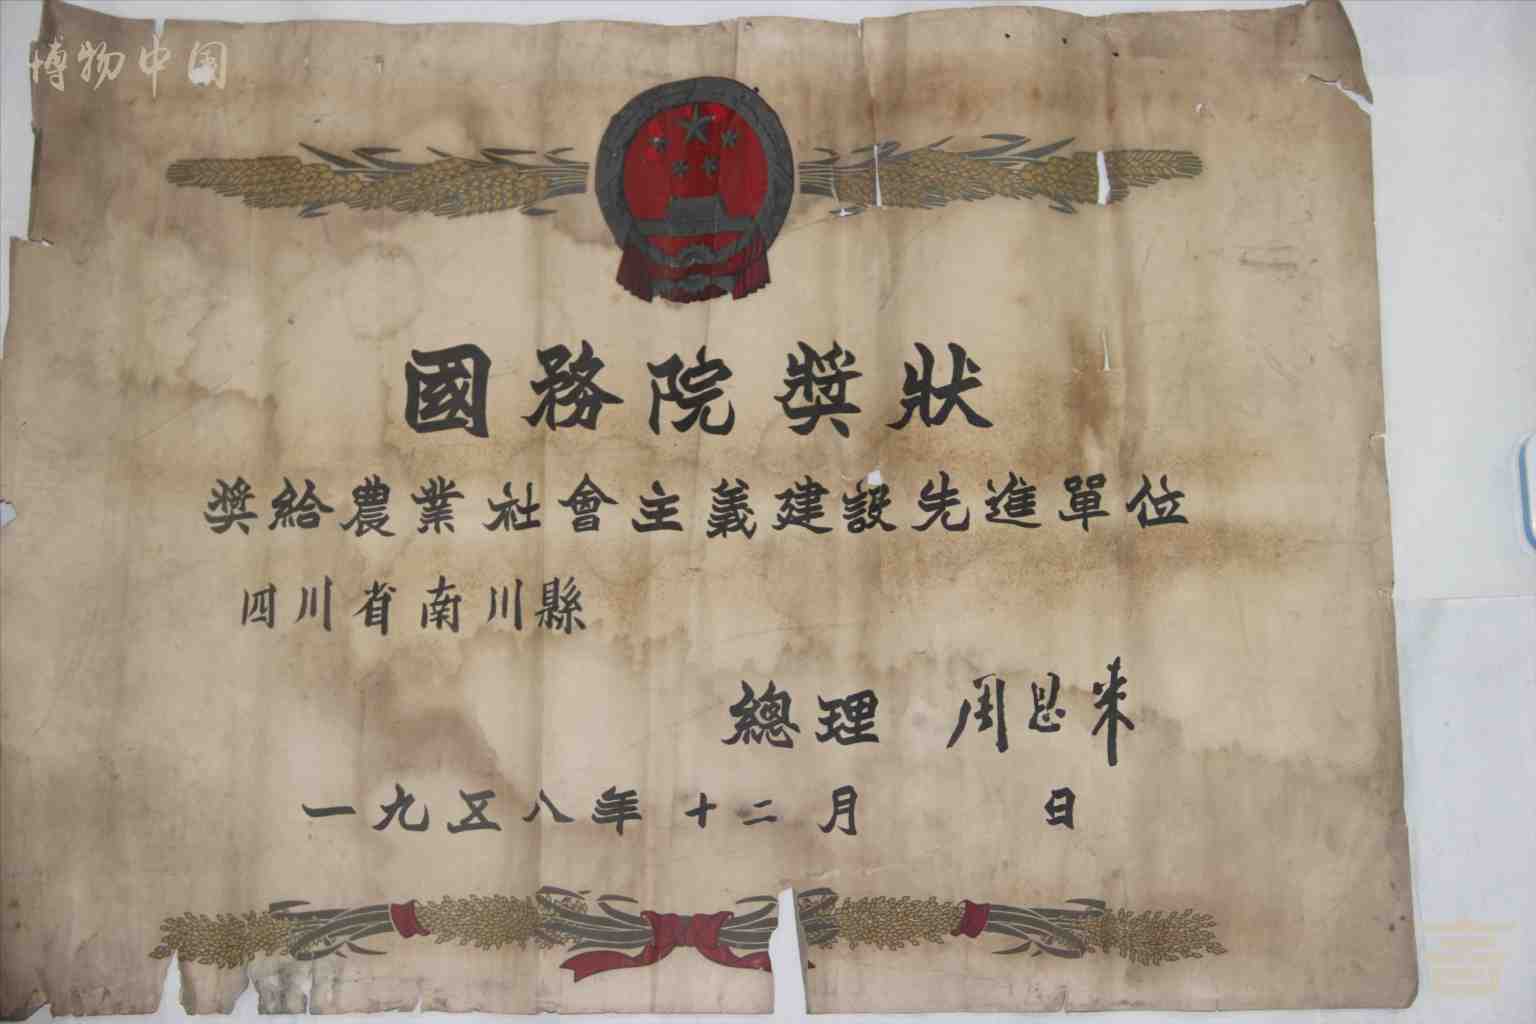 博物中国
國務院獎狀
獎給農業社會主義建設先進單位
四川省南川縣
總理 周恩来
一九五八年 十二月 日